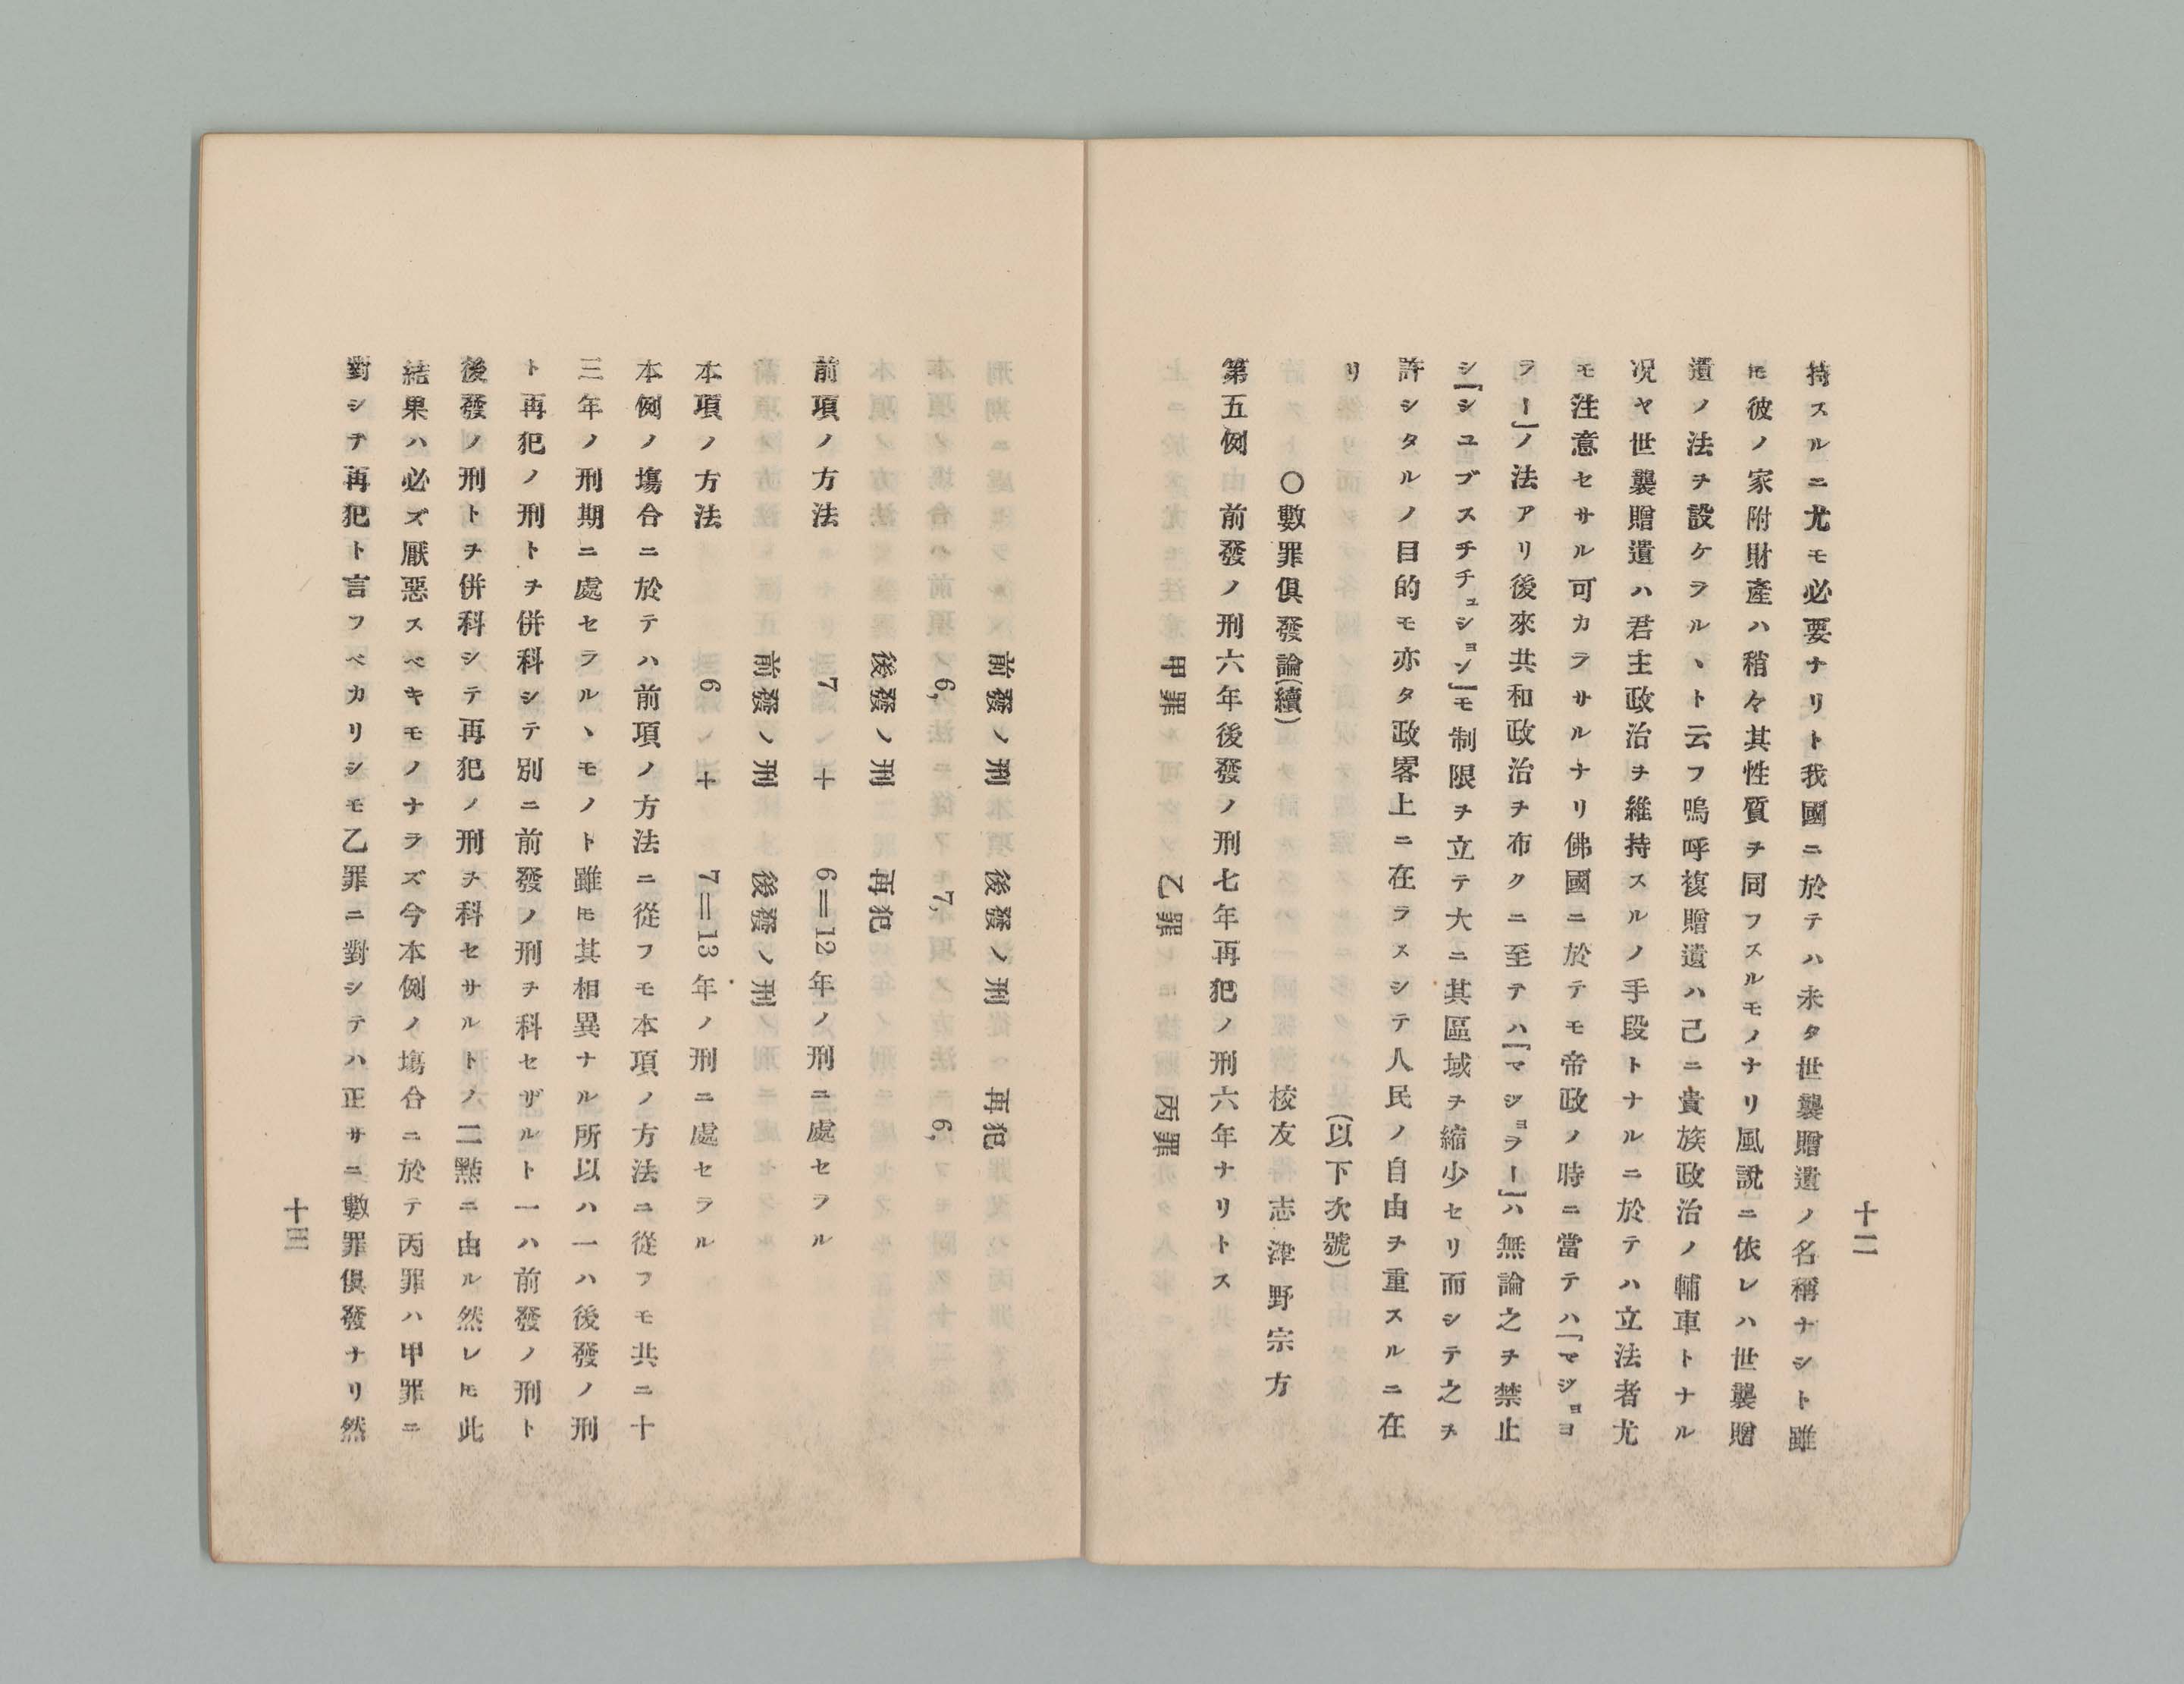 十二
持スルニ尤モ必要ナリト我國ニ於テハ未タ世襲贈遺ノ名稱ナシト雖
𪜈彼ノ家附財産ハ稍々其性質ヲ同フスルモノナリ風説ニ依レハ世襲贈
遺ノ法ヲ設ケラルヽト云フ嗚呼複贈遺ハ己ニ貴族政治ノ輔車トナル
况ヤ世襲贈遺ハ君主政治ヲ維持スルノ手段トナルニ於テハ立法者尤
モ注意セサル可カラサルナリ佛國ニ於テモ帝政ノ時ニ當テハ「マジョヨ
ラー」ノ法アリ後來共和政治ヲ布クニ至テハ「マジョラー」ハ無論之ヲ禁止
シ「シユブスチチュション」モ制限ヲ立テ大ニ其區域ヲ縮少セリ而シテ之ヲ
許シタルノ目的モ亦タ政畧上ニ在ラスシテ人民ノ自由ヲ重スルニ在
リ
(以下次號)
〇數罪俱發論(續)
校友 志津野宗方
第五例 前發ノ刑六年後發ノ刑七年再犯ノ刑六年ナリトス
甲罪 乙罪 丙罪
前發ノ刑 後發ノ刑 再犯
6, 7, 6,
後發ノ刑 再犯
前項ノ方法 7 + 6=12年ノ刑ニ處セラル
前發ノ刑 後發ノ刑
本項ノ方法 6 + 7=13年ノ刑ニ處セラル
本例ノ塲合ニ於テハ前項ノ方法ニ從フモ本項ノ方法ニ從フモ共ニ十
三年ノ刑期ニ處セラルヽモノト雖𪜈其相異ナル所以ハ一ハ後發ノ刑
ト再犯ノ刑トヲ併科シテ別ニ前發ノ刑ヲ科セザルト一ハ前發ノ刑ト
後發ノ刑トヲ併科シテ再犯ノ刑ヲ科セサルトノ二㸃ニ由ル然レ𪜈此
結果ハ必ズ厭惡スベキモノナラズ今本例ノ塲合ニ於テ丙罪ハ甲罪ニ
對シテ再犯ト言フベカリシモ乙罪ニ對シテハ正サニ數罪俱發ナリ然
十三